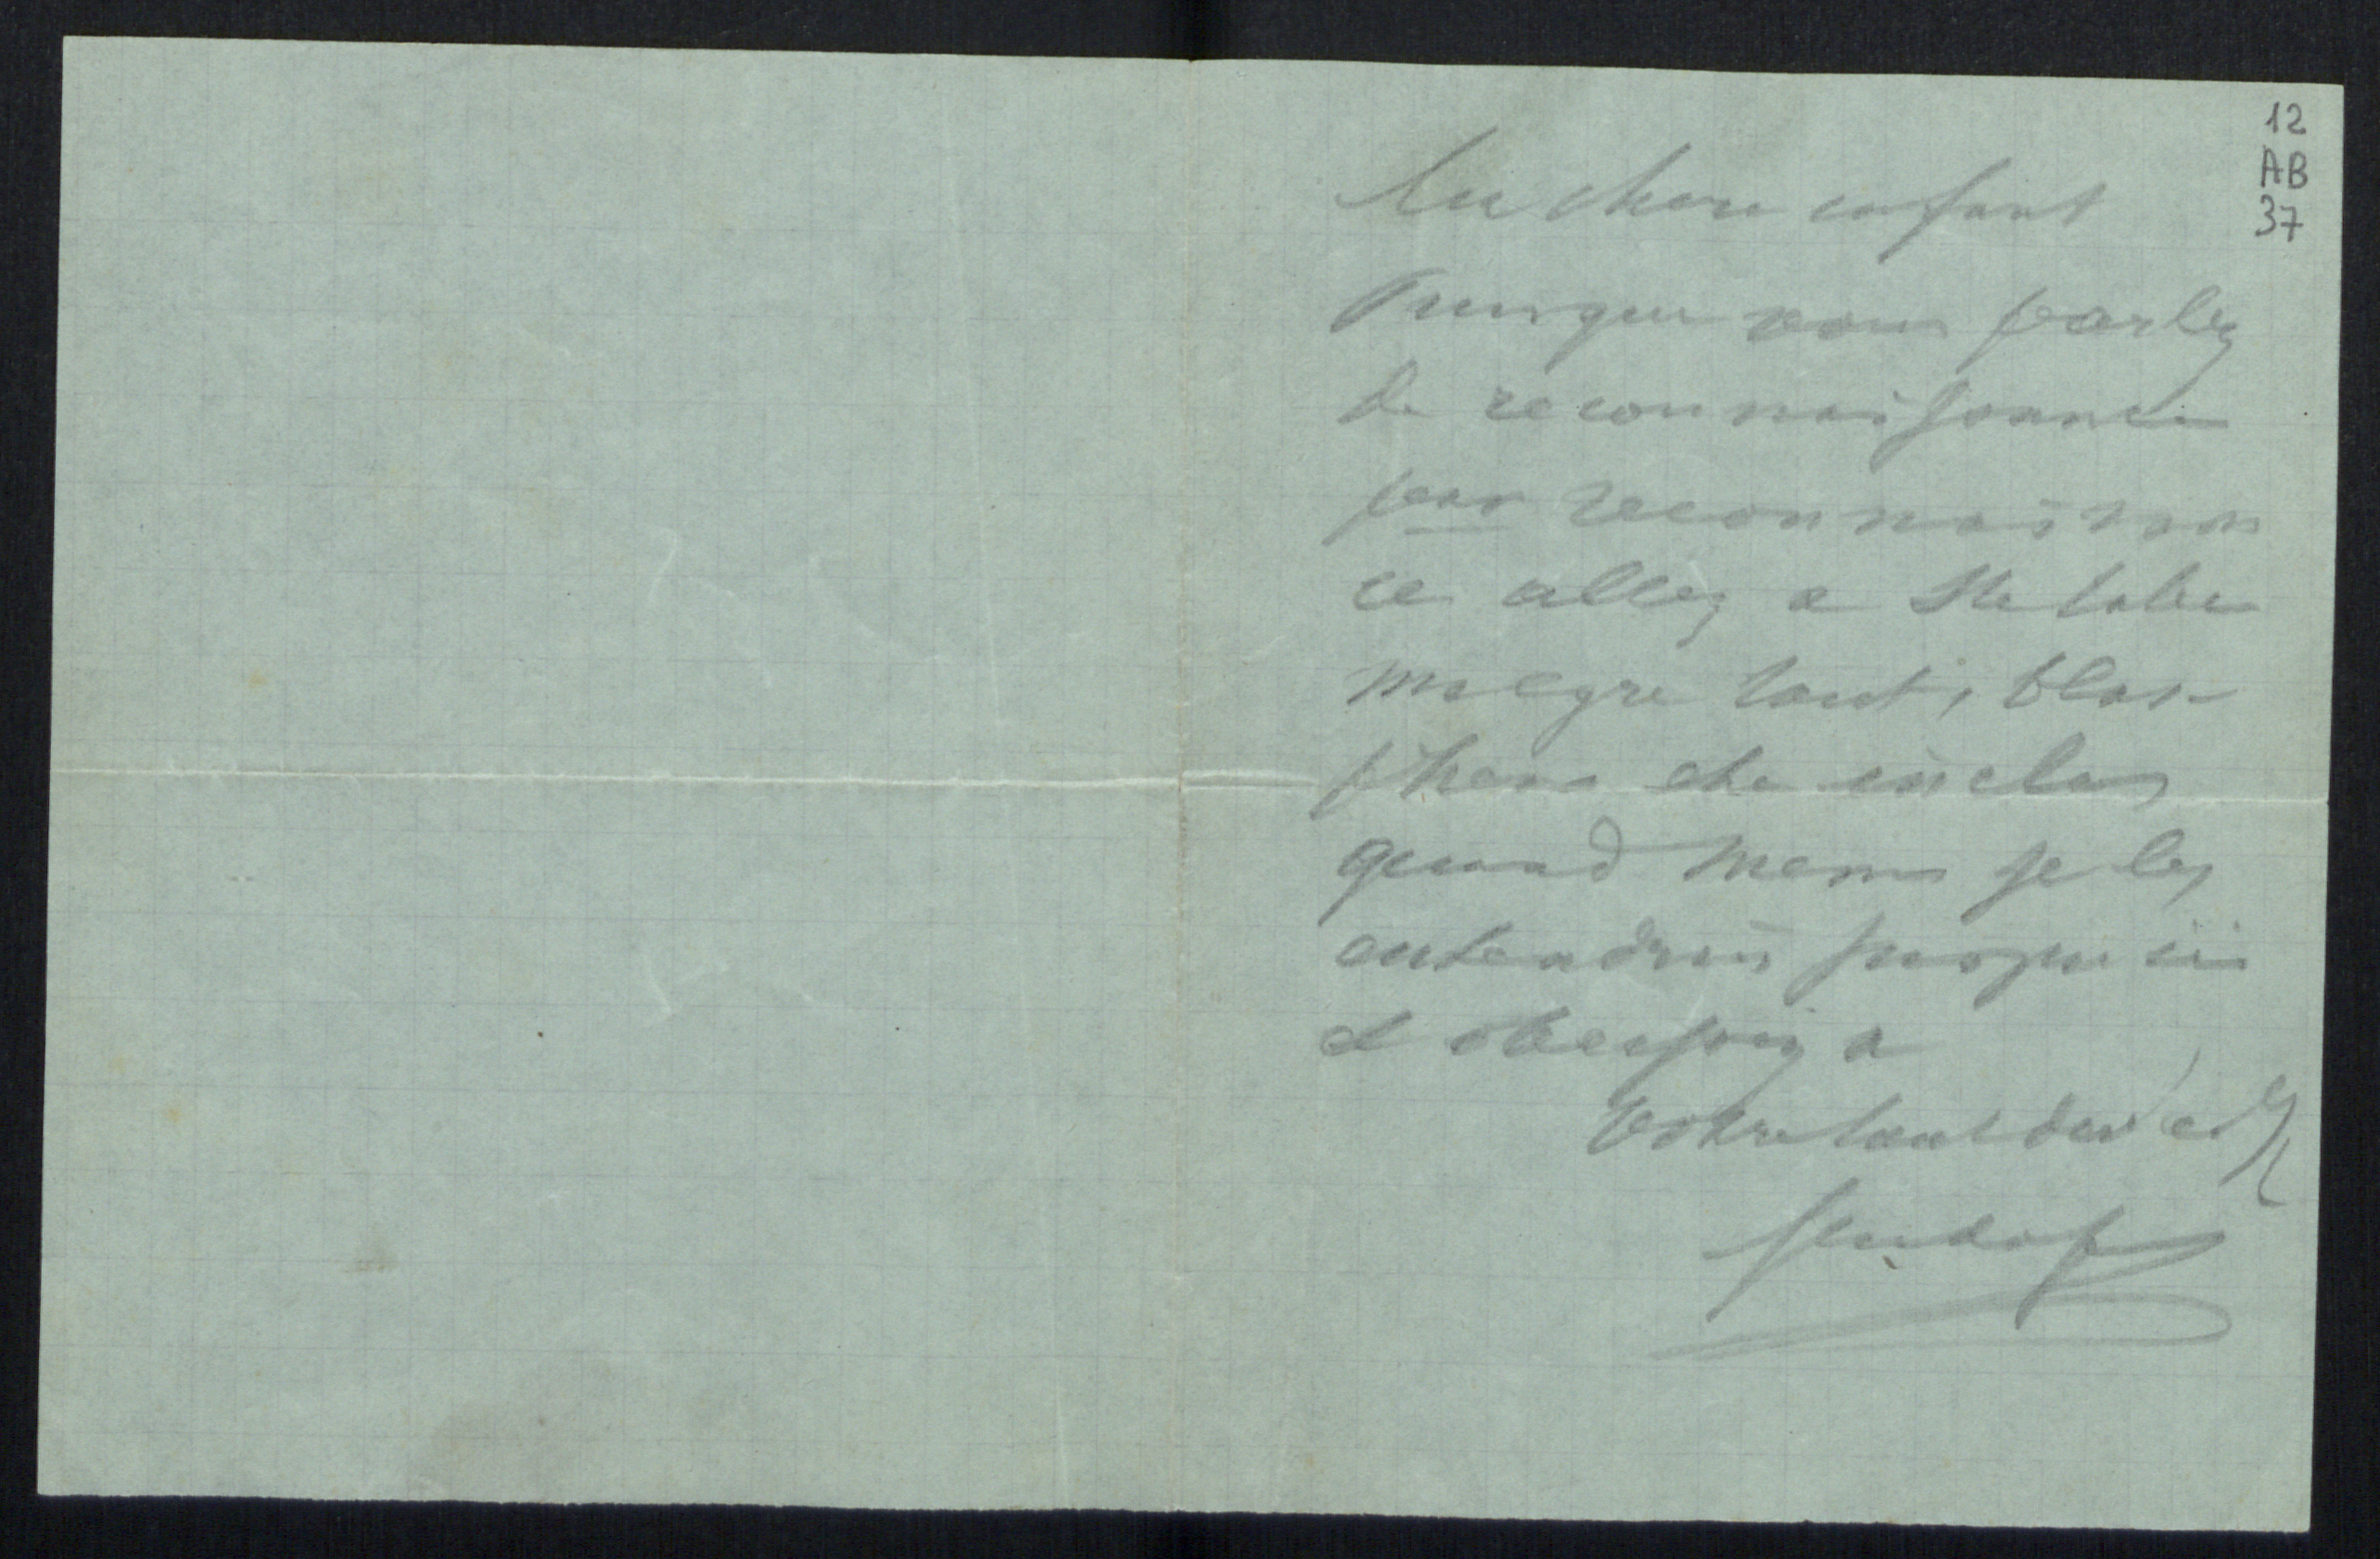 12
AB
37
Ma chere enfant
Puisque vous parlez
de reconnaissance
par reconnaissan
ce allez a Ste table
malgre tout, blas-
phemes etc inclus
quand meme je les
entendrais jusqu ici
et obeissez a
votre tout devoué